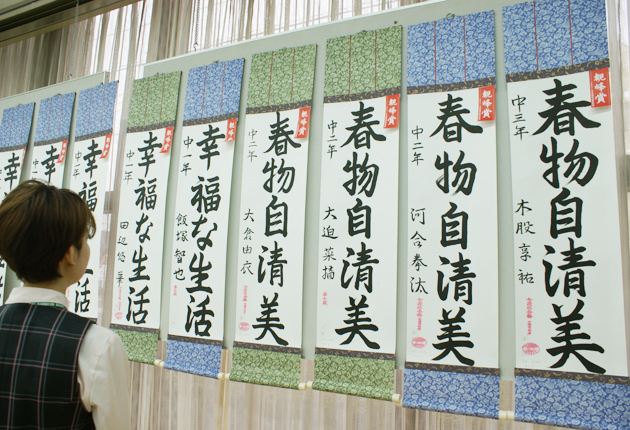 親峰賞
春物自清美
中三年
木股享祐
親峰賞
春物自清美
中二年
河合拳汰
親峰賞
春物自清美
中二年
大迫菜摘
親峰賞
春物自清美
中二年
大倉由衣
親峰賞
幸福な生活
中一年
飯塚智也
親峰賞
幸福な生活
中一年
田辺悠
幸
中一年
幸
中一年